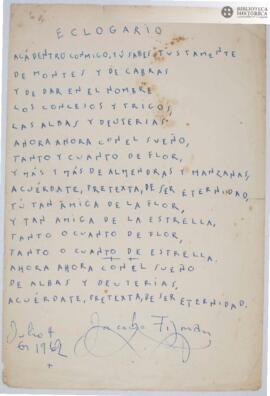 BIBLIOTECA
HISTÓRICA
ECLOGARIO
ACÁ DENTRO CONMIGO, TÚ SABES JUSTAMENTE
DE MONTES Y DE CABRAS
Y DE DAR EN EL HOMBRE
LOS CONCEJOS Y TRIGOS,
LAS ALBAS Y DEUTERIAS.
AHORA AHORA CON EL SUEÑO,
TANTO Y CUANTO DE FLOR,
Y MÁS Y MÁS DE ALMENDRAS Y MANZANAS,
ACUÉRDATE, PRETEXTA, DE SER ETERNIDAD,
TÚ TAN AMIGA DE LA FLOR,
Y TAN AMIGA DE LA ESTRELLA,
TANTO O CUANTO DE FLOR,
TANTO O CUANTO DE ESTRELLA.
AHORA AHORA CON EL SUEÑO
DE ALBAS Y DEUTERIAS,
ACUÉRDATE, PRETEXTA, DE SER ETERNIDAD.
Julio
6 1962
Jacobo Fijman